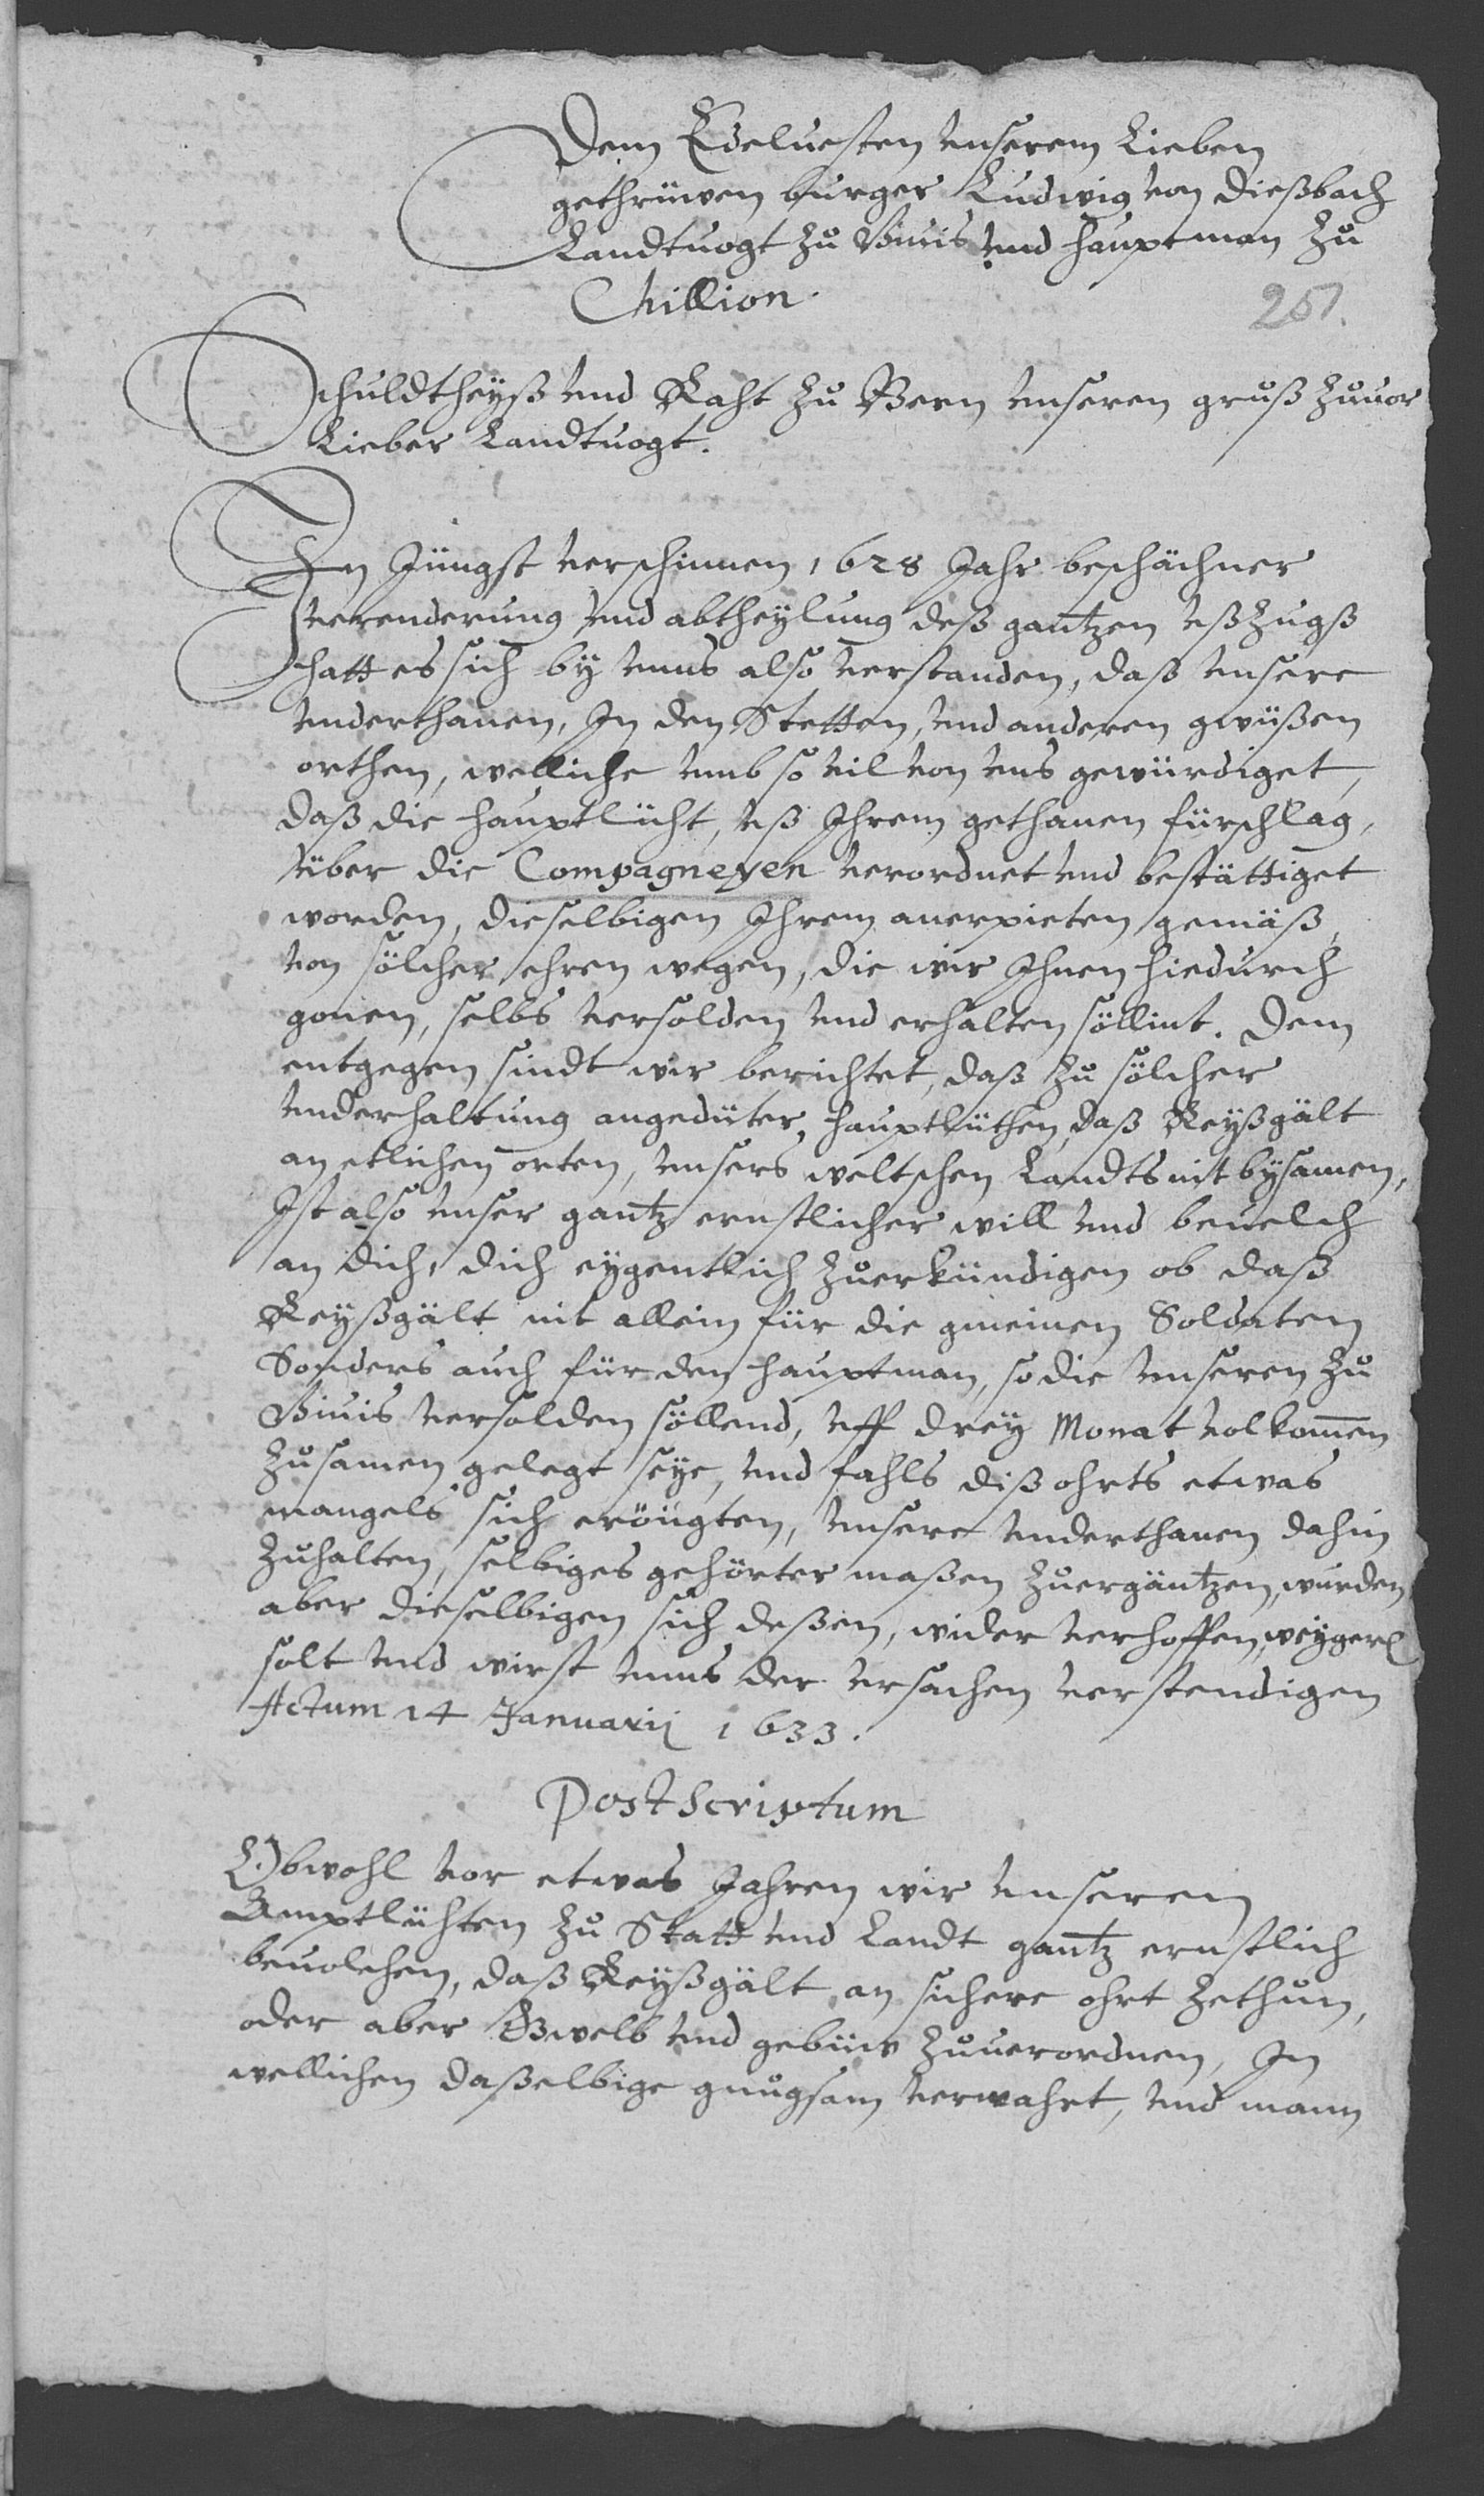 Dem Edeluesten vnserem Lieben
gethrüwen burger Ludwig von Dießbach
Landtuogt zu Viuis vnd hauptman zu
Chillion.
251.
Schuldtheyß vnd Raht zu Bern vnseren gruß zuuor
Lieber Landtuogt.
In Jüngst verschinnen 1628 Jahr beschächner
verenderung vnd abtheylung deß gantzen vßzugß
hatt es sich by vnns also verstanden, daß vnsere
vnderthanen, In den Stetten, vnd anderen gwüßen
orthen, welliche vmb so vil von vns gewürdiget,
daß die hauptlüht, vß Ihrem gethanen fürschlag,
über die Compagneyen verordnet vnd bestättiget
worden, dieselbigen Ihrem anerpieten gemäß,
von sölcher ehren wegen, die wir Ihnen hiedurch
gonen, selbs versolden vnd erhalten söllint. Dem
entgegen sindt wir berichtet, daß zu sölcher
vnderhaltung angedüter hauptlüthen, daß Reyßgält
an etlichen orten, vnsers weltschen Landts nit bysamen,
Ist also vnser gantz ernstlicher will vnd beuelch
an dich, dich eygentlich zuerkündigen ob daß
Reyßgält nit allein für die gmeinen Soldaten
Sonders auch für den hauptman, so die vnseren zu
Viuis versolden söllend, vff drey Monat volkomen
zusamen gelegt seye, vnd fahls diß ohrts etwas
mangels sich eröugten, vnsere vnderthanen dahin
zuhalten, selbiges gehörter maßen zuergäntzen, wurden
aber dieselbigen sich deßen, wider verhoffen, weygeren
solt vnd wirst vnns der vrsachen verstendigen
Actum 14 Januarij 1633.
Postscriptum
Obwohl vor etwas Jahren wir vnseren
Amptlühten zu Statt vnd Landt gantz ernstlich
beuolchen, daß Reyßgält an sichere ohrt zethun,
oder aber Gwelb vnd gebüw zuuerordnen, In
wellichen daßelbige gnugsam verwahrt, vnd mann